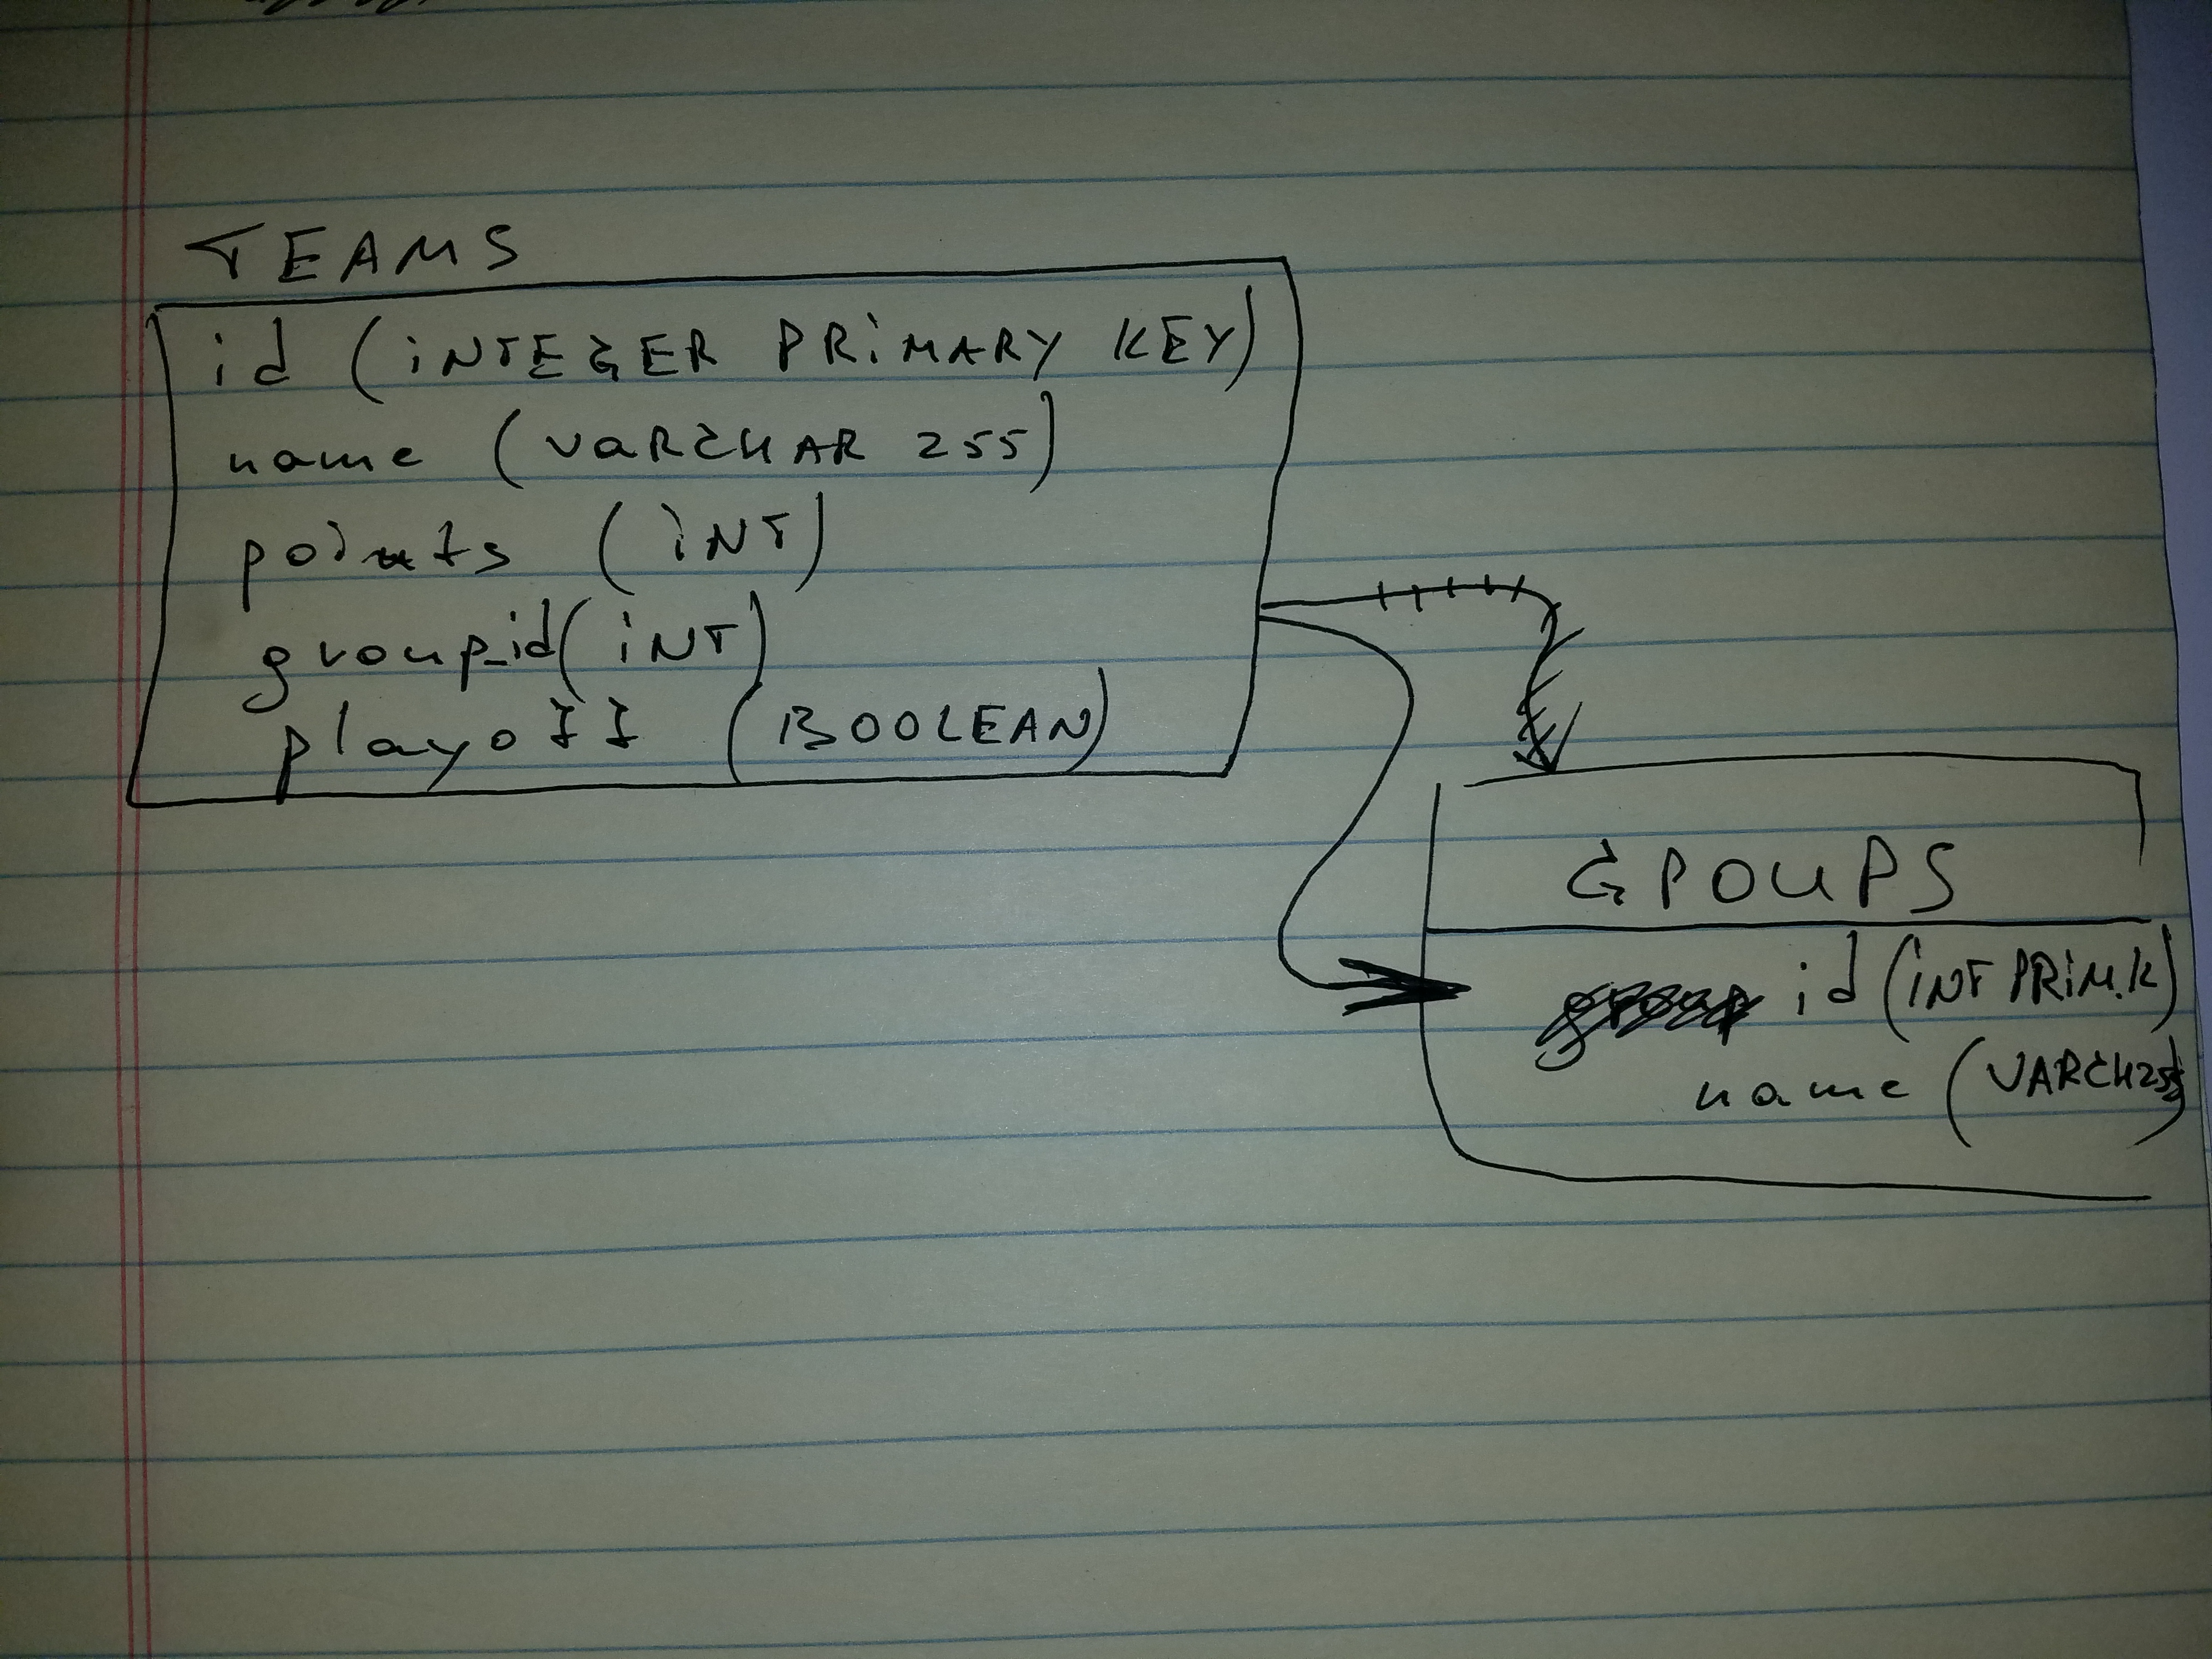 TEAMS
id (INTEGER PRIMARY KEY)
name (VARCHAR 255)
points (INT)
group_id (INT)
playoff (BOOLEAN)
GPOUPS
id (INT PRIM.K)
name (VARCH255)